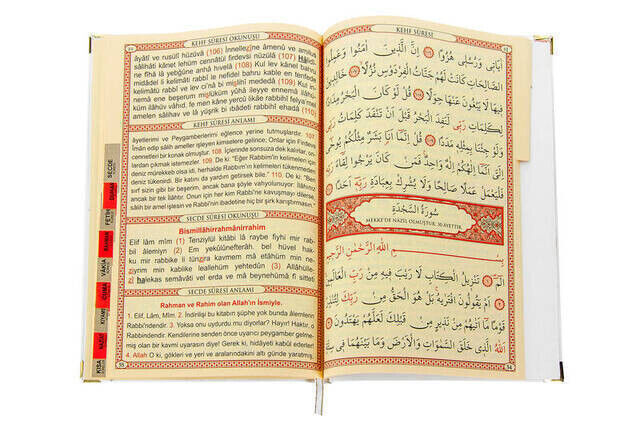 KEHF SÛRESİ OKUNUŞU
âyâtî ve rusulî hüzüvâ (106) İnnellezîne âmenû ve amilus
sâlihâti kânet lehüm cennâtül firdevsi nüzülâ (107) Hâlidî-
ne fîhâ lâ yebğûne anhâ hıvelâ (108) Kul lev kânel bahru
midâdel li kelimâti rabbî le nefidel bahru kable en tenfede
kelimâtü rabbî ve lev ci'nâ bi mislihî mededâ (109) Kul in-
nemâ ene beşerum mislüküm yûhâ ileyye ennemâ ilâhü-
küm ilâhüv vâhıd, fe men kâne yercû likâe rabbihî felya'mel
amelen sâlihav ve lâ yüşrik bi ıbâdeti rabbihî ehadâ (110)
KEHF SÛRESİ ANLAMI
âyetlerimi ve Peygamberlerimi eğlence yerine tutmuşlardır. 107.
İman edip salih ameller işleyen kimselere gelince; Onlar için Firdevs
cennetleri bir konak olmuştur. 108. İçlerinde sonsuza dek kalırlar, on-
lardan çıkmak istemezler. 109. De ki: "Eğer Rabbimin kelimeleri için
deniz mürekkep olsa idi, herhalde Rabbimin kelimeleri tükenmeden
deniz tükenirdi. Bir katını da yardım getirsek bile." 110. De ki: "Ben
sırf sizin gibi bir beşerim, ancak bana şöyle vahyolunuyor: İlâhınız
ancak bir tek ilâhtır. Onun için her kim Rabbine kavuşmayı dilerse
salih bir amel işlesin ve Rabbine ibadetine hiç bir şirk karıştırmasın.
SECDE SÛRESİ OKUNUŞU
Bismillâhirrahmânirrahîm
Elif lâm mîm (1) Tenzîlül kitâbi lâ raybe fîhi mir rab-
bil âlemîyn (2) Em yekûlûnefterâh, bel hüvel hak-
ku mir rabbike li tünzira kavmem mâ etâhüm min ne-
zîyrim min kablike leallehüm yehtedûn (3) Allâhülle-
zî halekas semâvâti vel erda ve mâ beynehümâ fî sitteti
SECDE SÛRESİ ANLAMI
Rahman ve Rahim olan Allah'ın İsmiyle.
1. Elif, Lâm, Mîm. 2. İndirilişi bu kitabın şüphe yok bunda âlemlerin
Rabbi'ndendir. 3. Yoksa onu uydurdu mu diyorlar? Hayır! Haktır, o
Rabbindendir. Kendilerine senden önce uyarıcı peygamber gelme-
miş olan bir kavmi uyarasın diye! Gerek ki, hidâyeti kabûl ederler!
4. Allah O ki, gökleri ve yeri ve aralarındakini altı günde yaratmış,
SECDE
FETİH
VAKIA
CUMA
KIYAME
KISA
KEHF SÛRESİ
اٰيَاتٖي وَرُسُلٖي هُزُوًا اِنَّ الَّذٖينَ اٰمَنُوا وَعَمِلُوا
الصَّالِحَاتِ كَانَتْ لَهُمْ جَنَّاتُ الْفِرْدَوْسِ نُزُلًا خَالِدٖينَ
فٖيهَا لَا يَبْغُونَ عَنْهَا حِوَلًا قُلْ لَوْ كَانَ الْبَحْرُ مِدَادًا
لِكَلِمَاتِ رَبّٖي لَنَفِدَ الْبَحْرُ قَبْلَ اَنْ تَنْفَدَ كَلِمَاتُ رَبّٖي
وَلَوْ جِئْنَا بِمِثْلِهٖ مَدَدًا قُلْ اِنَّمَا اَنَا بَشَرٌ مِثْلُكُمْ يُوحٰى
اِلَيَّ اَنَّمَا اِلٰهُكُمْ اِلٰهٌ وَاحِدٌ فَمَنْ كَانَ يَرْجُوا لِقَاءَ رَبِّهٖ
فَلْيَعْمَلْ عَمَلًا صَالِحًا وَلَا يُشْرِكْ بِعِبَادَةِ رَبِّهٖ اَحَدًا
سُورَةُ السَّجْدَةِ
MEKKE'DE NAZİL OLMUŞTUR. 30 AYETTİR.
بِسْمِ اللّٰهِ الرَّحْمٰنِ الرَّحٖيمِ
الٓمٓ تَنْزٖيلُ الْكِتَابِ لَا رَيْبَ فٖيهِ مِنْ رَبِّ الْعَالَمٖينَ
اَمْ يَقُولُونَ افْتَرٰيهُ بَلْ هُوَ الْحَقُّ مِنْ رَبِّكَ لِتُنْذِرَ
قَوْمًا مَا اَتٰيهُمْ مِنْ نَذٖيرٍ مِنْ قَبْلِكَ لَعَلَّهُمْ يَهْتَدُونَ
اَللّٰهُ الَّذٖي خَلَقَ السَّمٰوَاتِ وَالْاَرْضَ وَمَا بَيْنَهُمَا فٖي